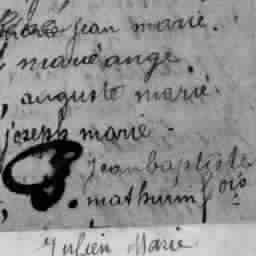 jean marie.
marie ange.
, auguste marie.
joseph marie.
jean baptiste
. mathurin fois
Julien Marie